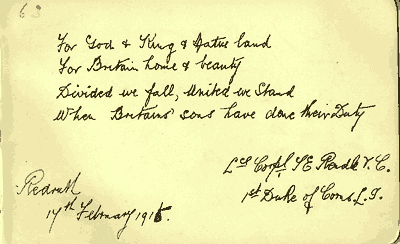 63
For God & King & Native land
For Britain home & beauty
Divided we fall, United we Stand
When Britains' sons have done their Duty
Lce Corpl TE Rendle V.C.
1st Duke of Corns. L.I.
Redruth
17th February 1915.